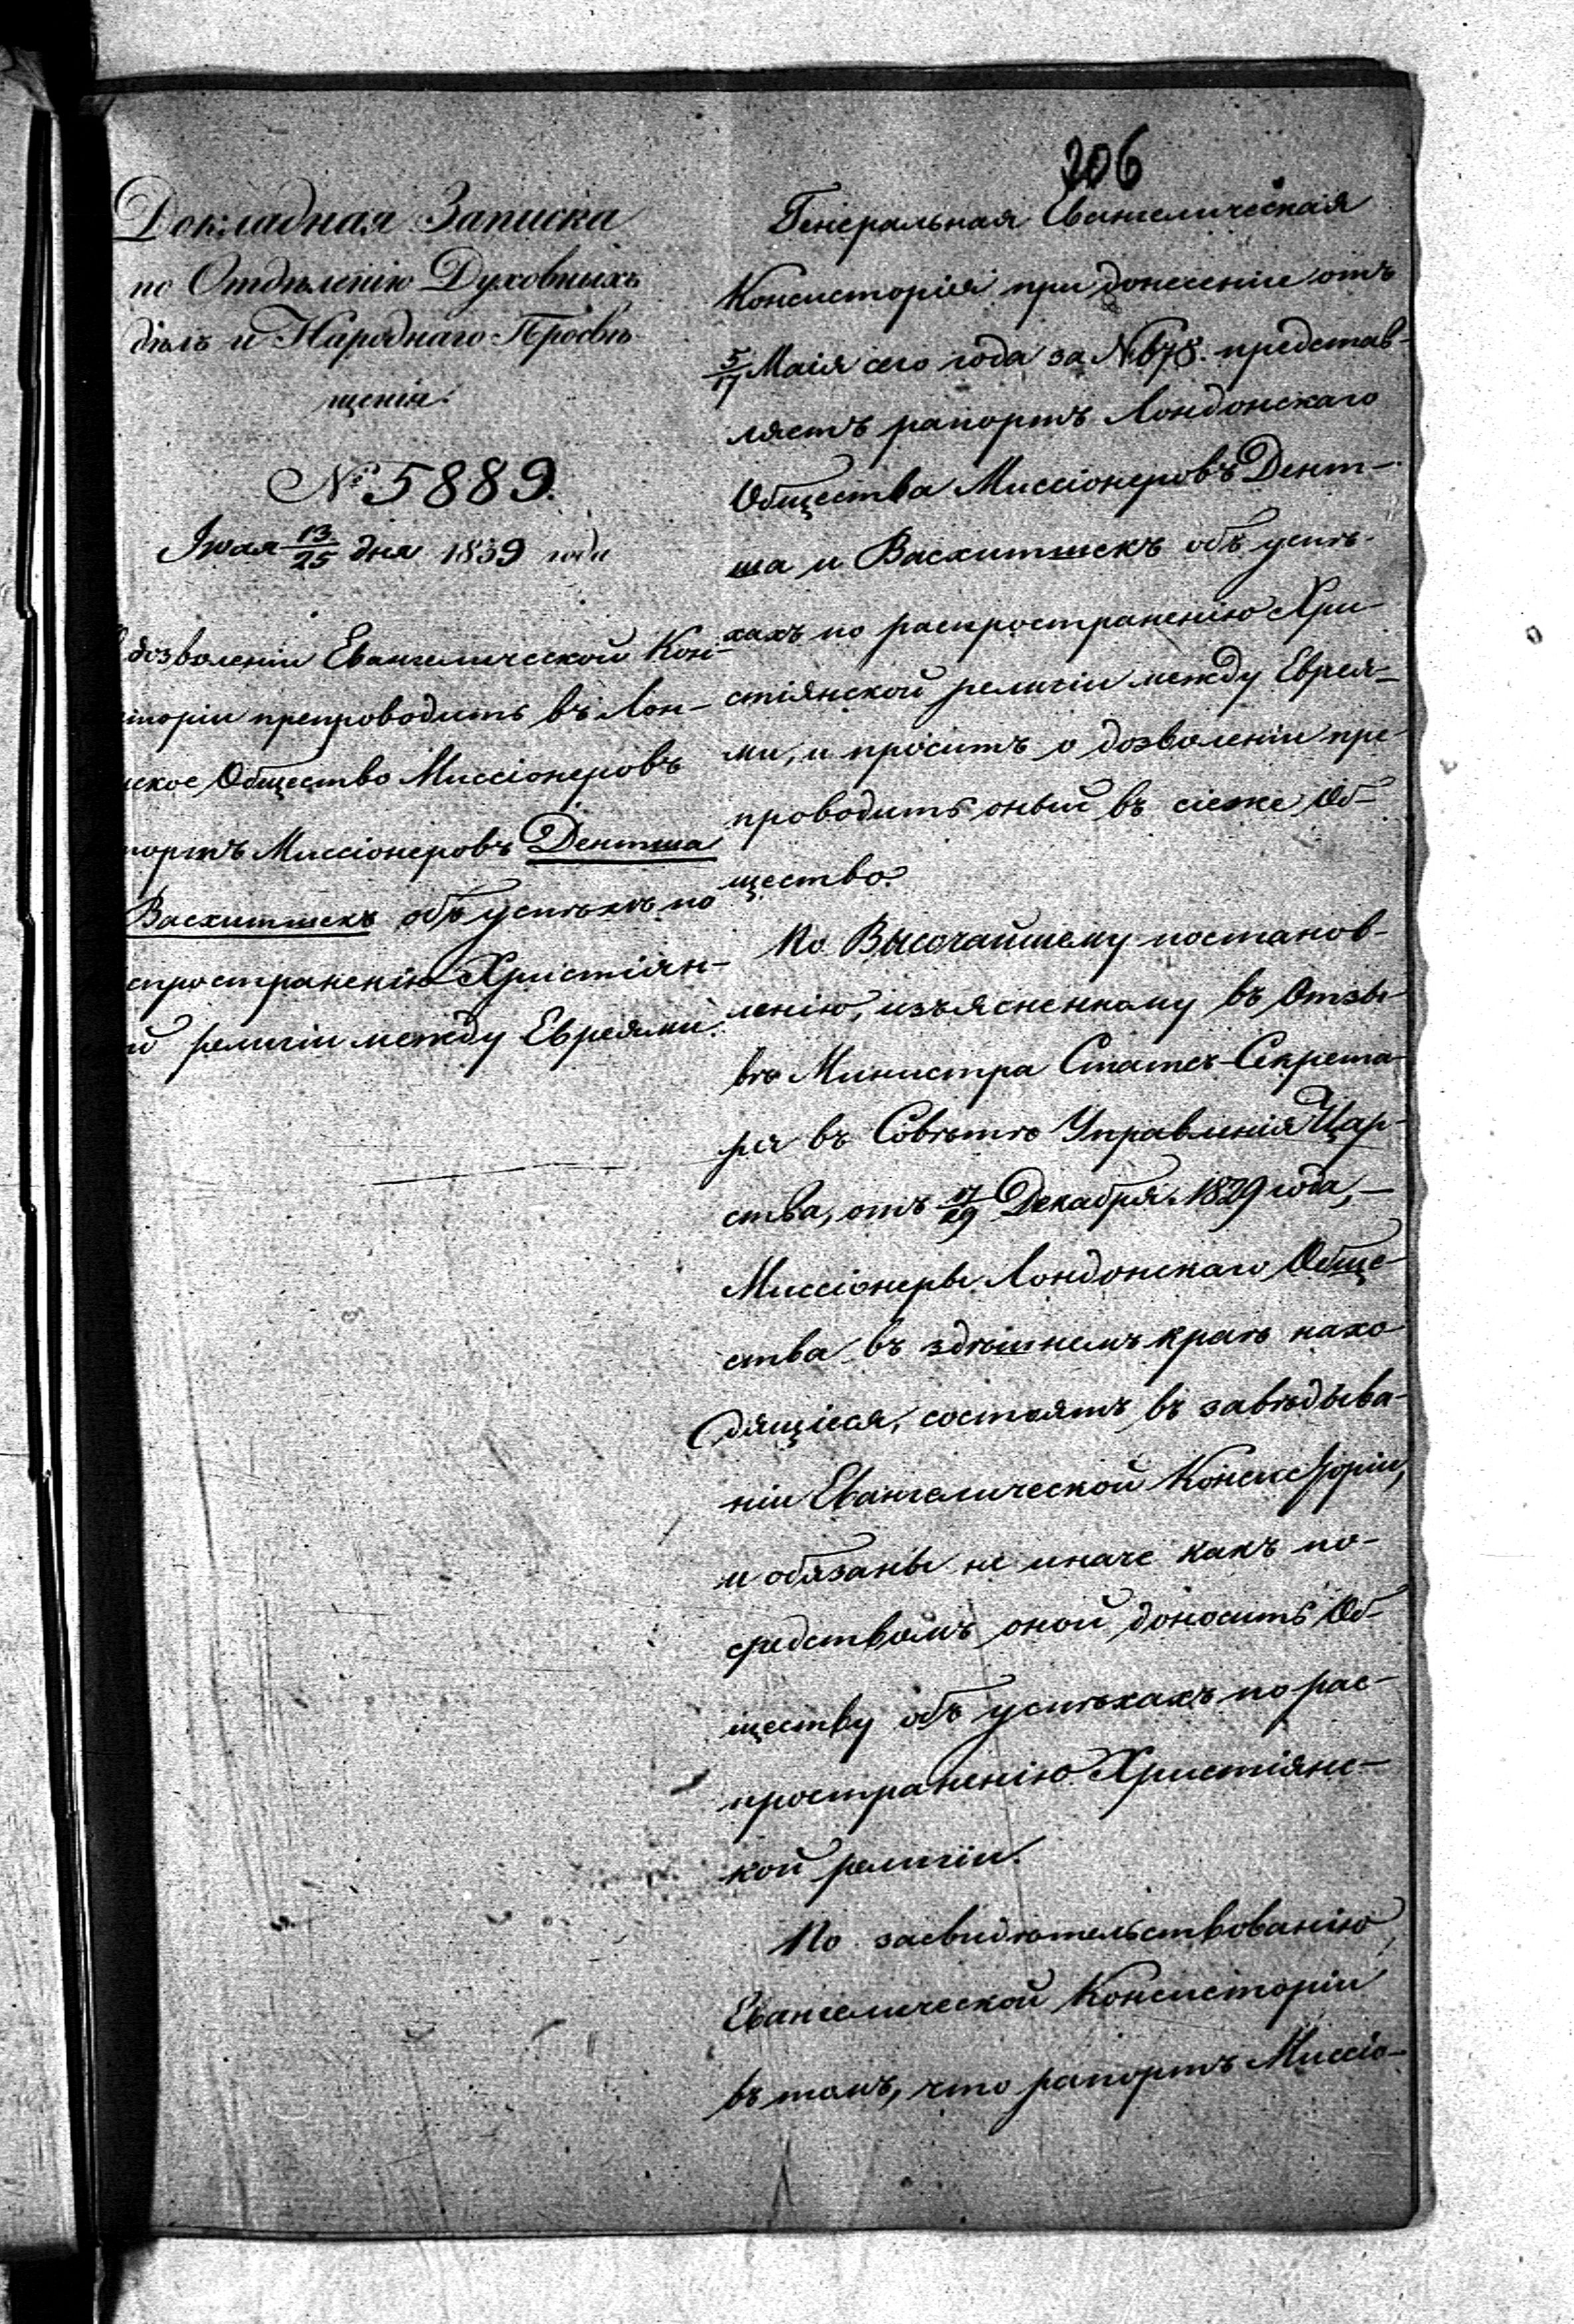 206
Докладная Записка
по Отдѣленію Духовныхъ
дѣлъ и Народнаго Просвѣ-
щенія.
№ 5889.
13/25 дня 1839 года
дозволеніи Евангелической Кон-
сторіи препроводить въ Лон-
нское Общество Миссіонеровъ
портъ Миссіонеровъ Дентша
Васхитшекъ объ успѣхѣ по
спространенію Христіян-
й религіи между Евреями.
Генеральная Евангелическая
Консисторія при донесеніи отъ
5/17 Маія сего года за № 678. представ-
ляетъ рапортъ Лондонскаго
Общества Миссіонеровъ Дент-
ша и Васхитшекъ объ успѣ-
хахъ по распространенію Хри-
стіянской религіи между Еврея-
ми, и проситъ о дозволеніи пре-
проводить оный въ сіеже Об-
щество.
По Высочайшему постанов-
ленію, изъясненному въ Отзы-
вѣ Министра Статсъ-Секрета-
ря въ Совѣтѣ Управленія Цар-
ства, отъ 17/29 Декабря 1829 года,—
Миссіонеры Лондонскаго Обще-
ства въ здѣшнемъ краѣ нахо-
дящіеся, состоятъ въ завѣдыва-
ніи Евангелической Консисторіи,
и обязаны не иначе какъ по-
средствомъ оной доносить Об-
ществу объ успѣхахъ по рас-
пространенію Христіянс-
кой религіи.
По засвидѣтельствованію
Евангелической Консисторіи
въ томъ, что рапортъ Миссіо-